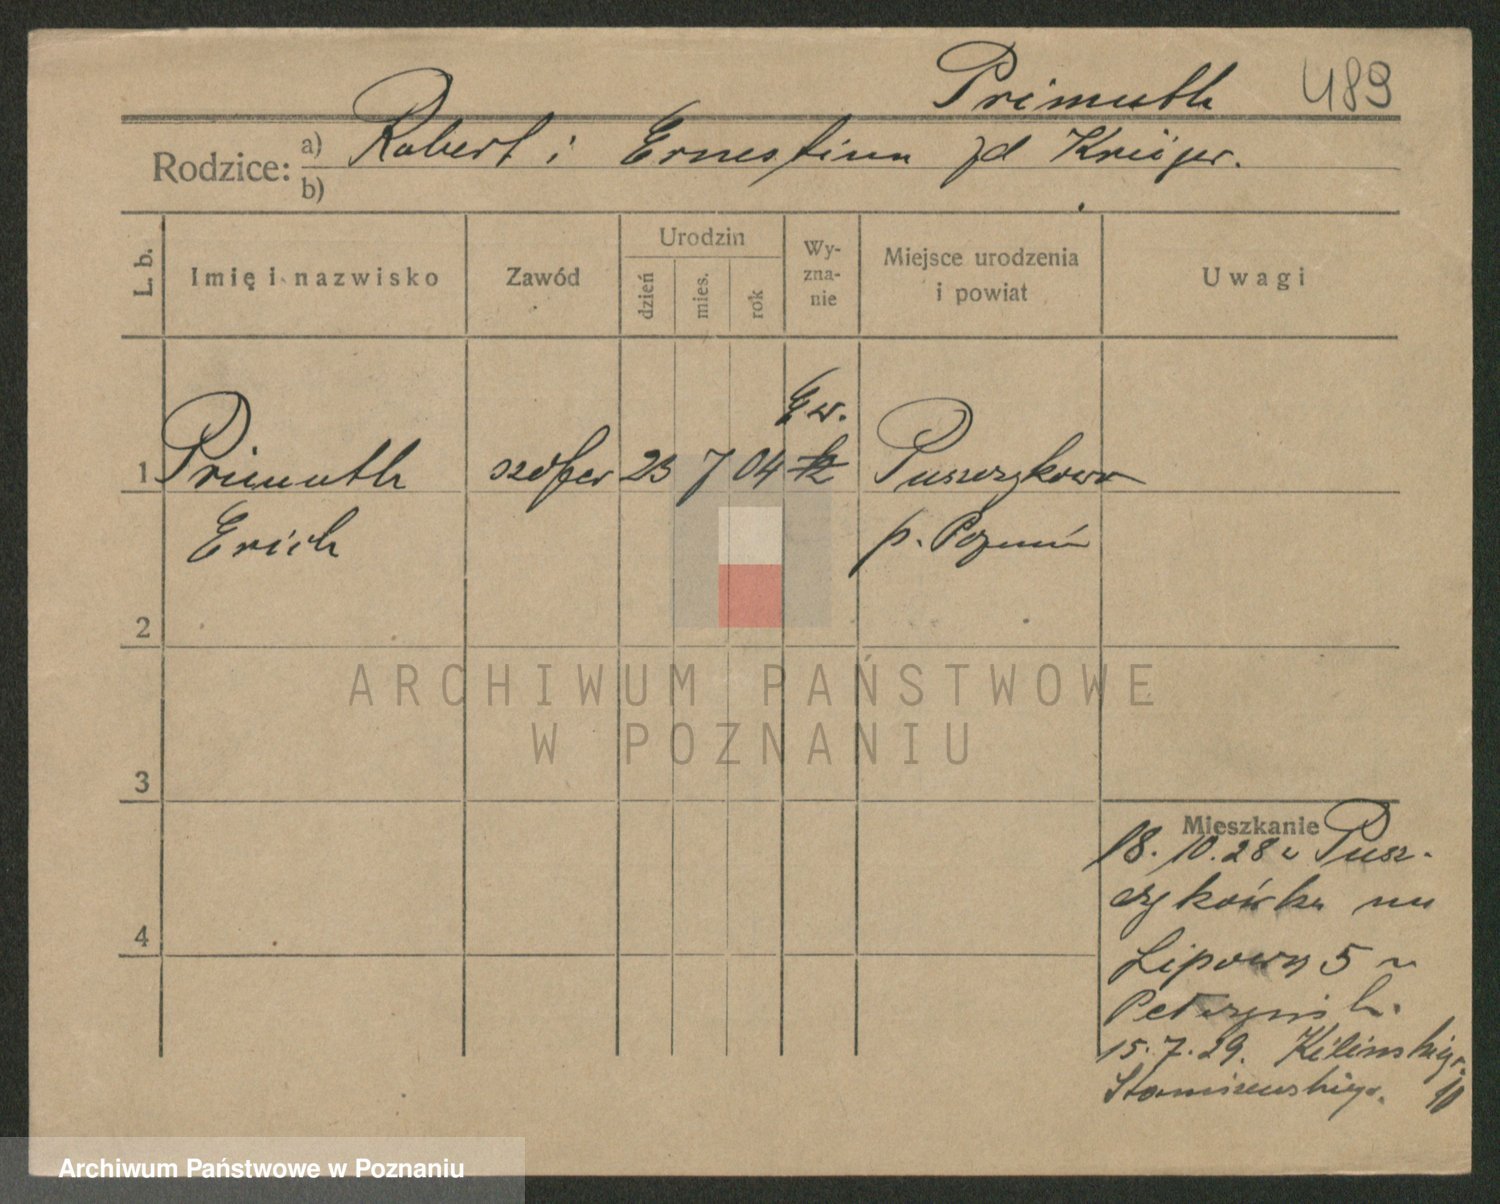 Primuth 489
Rodzice: a) Robert i Ernestina zd Krüger.
b)
L. b. Imię i nazwisko Zawód Urodzin dzień mies. rok Wy-zna-nie Miejsce urodzenia i powiat Uwagi
Ew.
1 Primuth szofer 23 7 04 k Puszczykowo
Erich p. Poznań
2
ARCHIWUM PAŃSTWOWE
W POZNANIU
3
Mieszkanie
18. 10. 28 z Pusz-
czykówka na
4
Lipowy 5 u
15. 7. 29. Kilińskiego 10
Staniszewskiego.
Archiwum Państwowe w Poznaniu